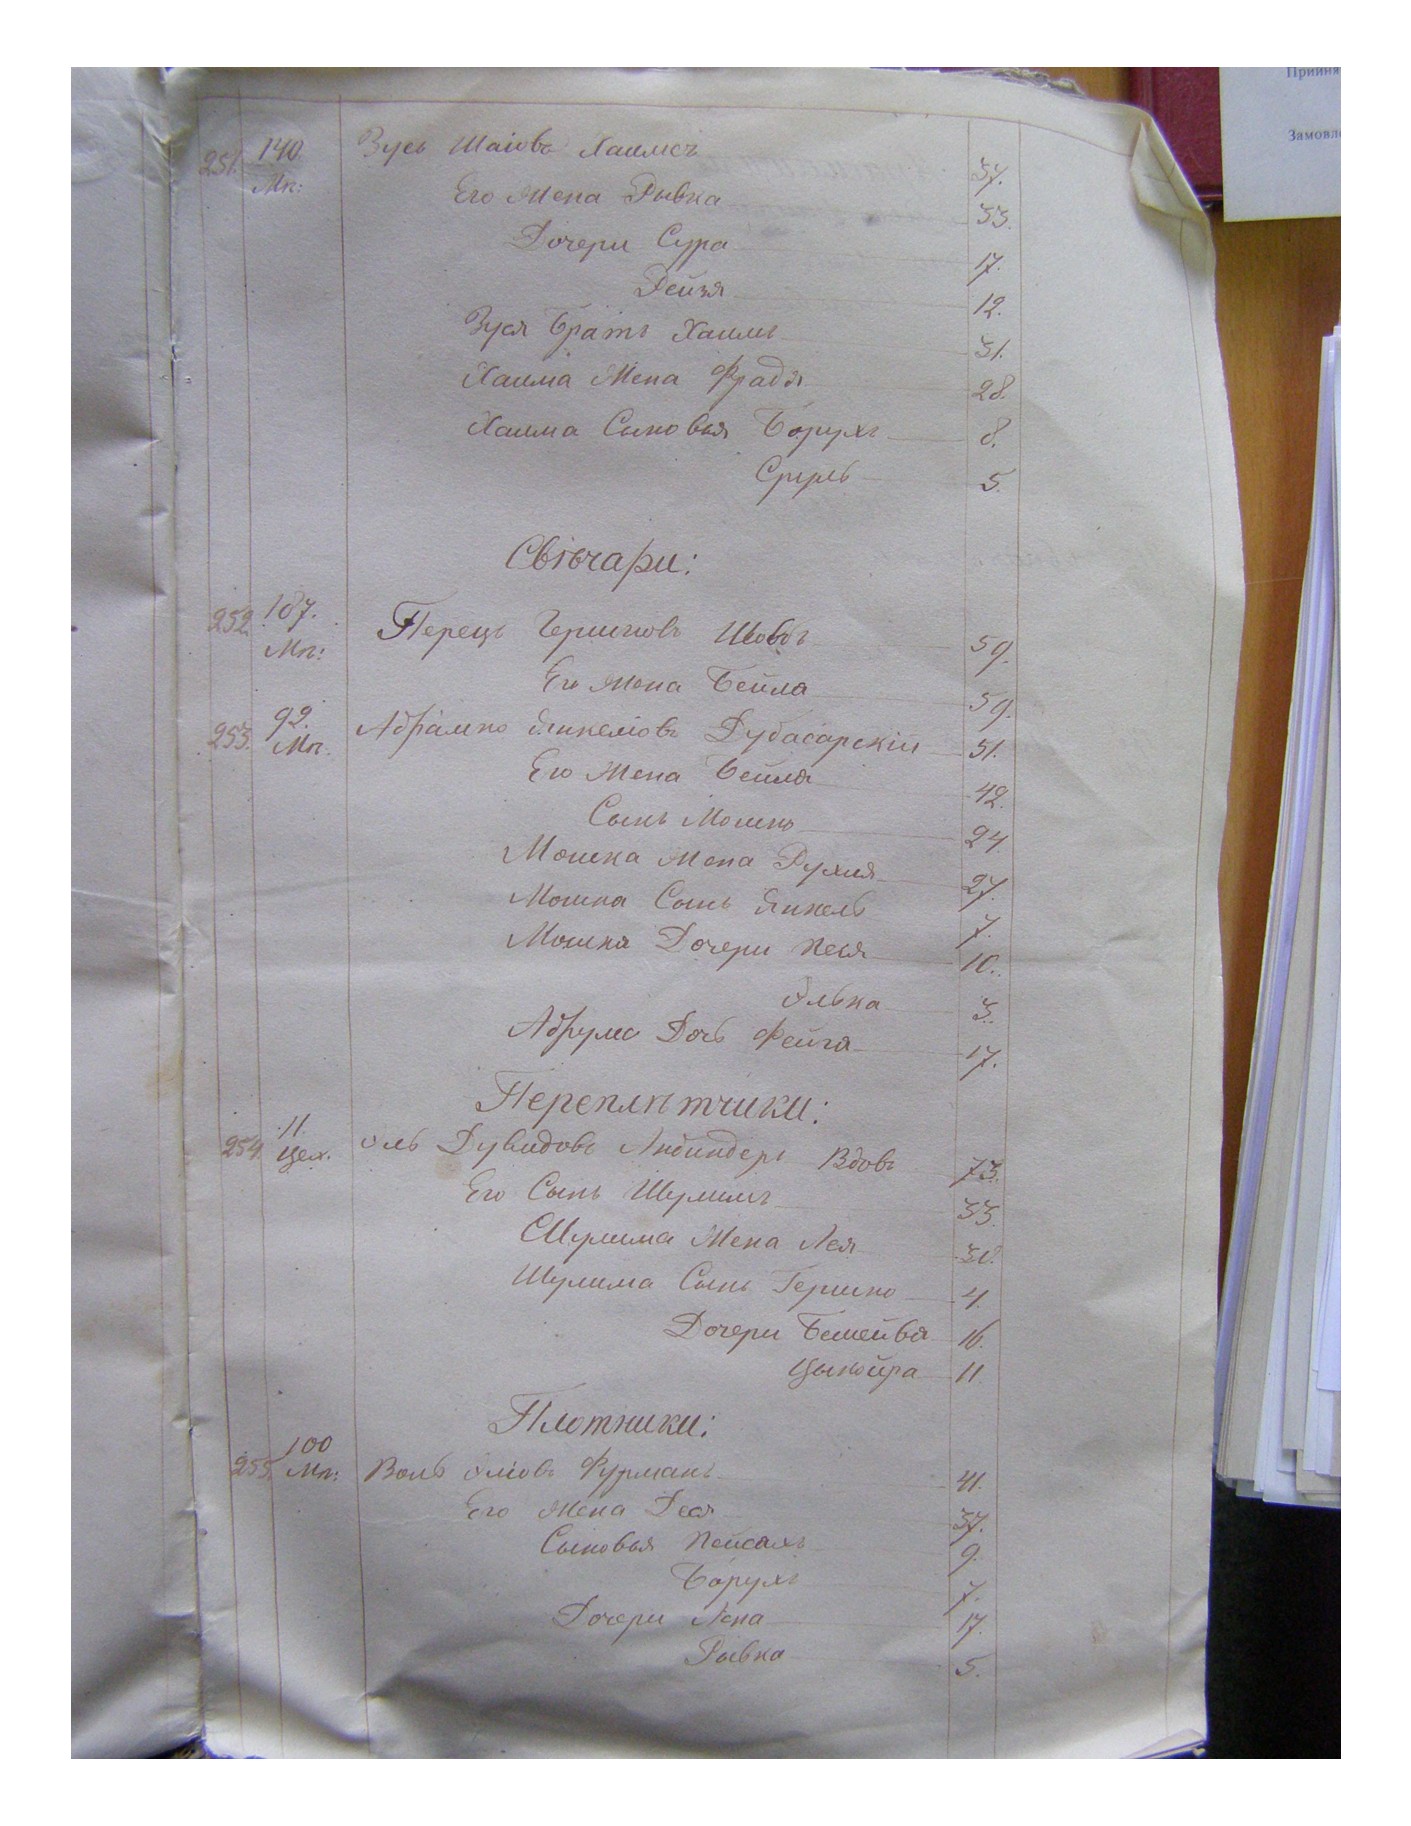 Прийня
Замовл
251. 140 Зусь Шаіовъ Хаимсъ 37.
Мп: Его Жена Рывка 33.
Дочери Сура 17.
Рейзя 12.
Зуся Братъ Хаимъ 31.
Хаима Жена Фрадя 28.
Хаима Сыновья Борухъ 8.
Сруль 5.
Свѣчари:
252. 187. Перецъ Гершковъ 59.
Мп: Его Жена Бейла 59.
253. 92. Абрамко Янкеліовъ Дубасарскій 51.
Мп. Его Жена Бейла 42.
Сынъ Мошко 24
Мошка Жена Рухля 27.
Мошка Сынъ Янкель 7.
Мошка Дочери Песя 10.
Элька 3.
Абрума Дочь Фейга 17.
Переплѣтчики:
254. 11. Эль Дувидовъ Вдовъ 73.
Цех. Его Сынъ Шулимъ 33.
Шулима Жена Лея 30.
Шулима Сынъ Гершко 4.
Дочери Башейва 16.
Цыпойра 11.
Плотники:
255. 100 Воль Эліовъ Фурманъ 41.
Мп: Его Жена Деся 37.
Сыновья Пейсахъ 9.
Борухъ 7.
Дочери 17.
Рывка 5.